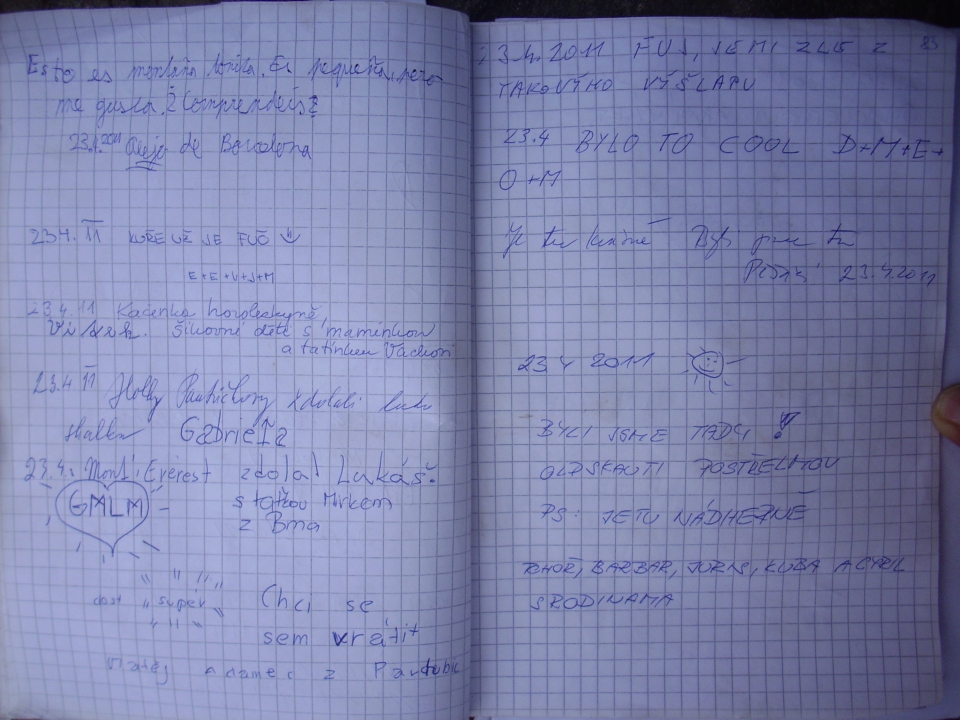 Esto es montaña bonita. Es pequeña, pero
me gusta. ¿Comprendéis?
23.4.2011 de Barcelona
23.4.11 KUŘE UŽ JE FUČ
E+E+V+J+M
23.4.11 Kačenka horolezkyně,
Šikovní děti s maminkou
a tatínkem Vackovi
23.4 11 Holky zdolali tuto
skálu Gabriela
23.4. Mont Everest zdolal Lukáš
s taťkou Mirkem
z Brna
GMLM
dost "super"
Chci se
sem vrátit
Matěj Adamec z Pardubic
83
23.4.2011 FUJ, JE MI ZLE Z
TAKOVÝHO VÝŠLAPU
23.4 BYLO TO COOL D+M+E+
O+M
Je tu krásně Byli jsme tu
23.4.2011
23.4 2011
BYLI JSME TADY!
OLDSKAUTI POSTŘELMOV
PS: JE TU NÁDHERNĚ
TCHOŘ, BARBAR, JORIS, KUBA A CYRIL
S RODINAMA